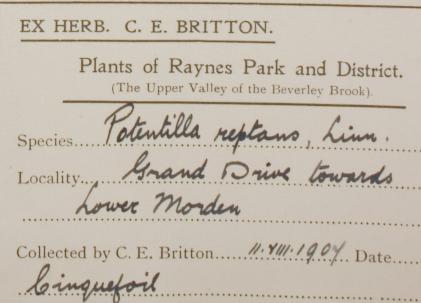 EX HERB. C. E. BRITTON.
Plants of Raynes Park and District.
(The Upper Valley of the Beverley Brook).
Species....Potentilla reptans, Linn.
Locality....Grand Drive towards
Lower Morden
Collected by C. E. Britton....11.VIII.1907..Date....
Cinquefoil